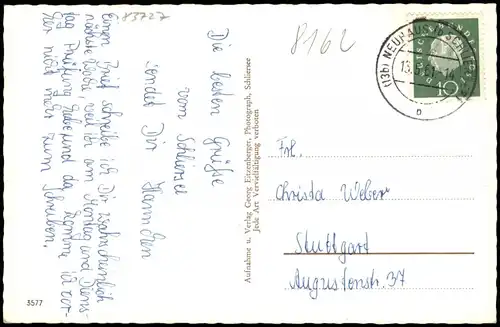 83727
8162
(13b) NEUHAUS
13.5.61
DEUTSCHE
10
Die besten Grüße
vom Schliersee
sendet Dir Hannchen
Einen Brief schreibe ich Dir wahrscheinlich
nächste Woche, weil ich am Montag und Diens-
tag Prüfung habe und da komme ich vor-
her nicht mehr zum Schreiben.
Aufnahme u. Verlag Georg Eitzenberger, Photograph, Schliersee
Jede Art Vervielfältigung verboten
Frl.
Christa Weber
Stuttgart
Augustenstr. 37
3577